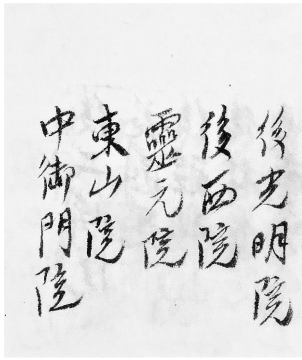 後光明院
後西院
靈元院
東山院
中御門院